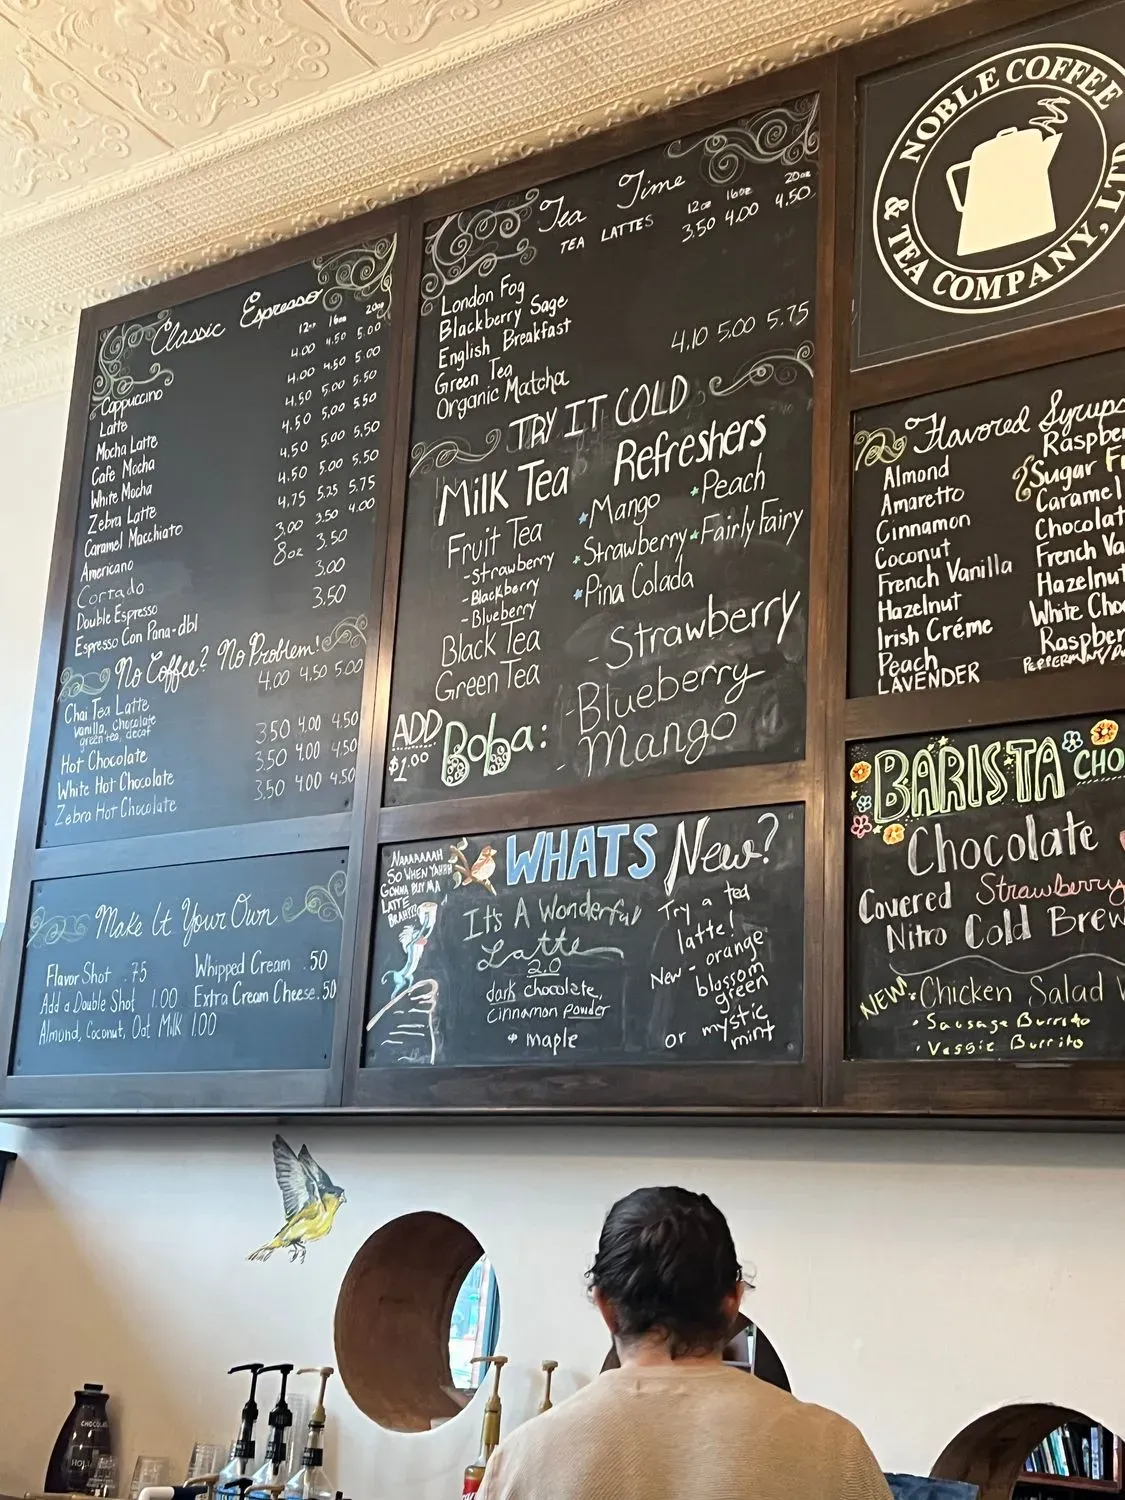 Classic Espresso
12oz 16oz 20oz
Cappuccino 4.00 4.50 5.00
Latte 4.00 4.50 5.00
Mocha Latte 4.50 5.00 5.50
Cafe Mocha 4.50 5.00 5.50
White Mocha 4.50 5.00 5.50
Zebra Latte 4.50 5.00 5.50
Caramel Macchiato 4.75 5.25 5.75
Americano 3.00 3.50 4.00
Corrado 8oz 3.50
Double Espresso 3.00
Espresso Con Pana-dbl 3.50
No Coffee? No Problem!
Chai Tea Latte 4.00 4.50 5.00
Vanilla, Chocolate
green tea, decaf
Hot Chocolate 3.50 4.00 4.50
White Hot Chocolate 3.50 4.00 4.50
Zebra Hot Chocolate 3.50 4.00 4.50
Make It Your Own
Flavor Shot .75 Whipped Cream .50
Add a Double Shot 1.00 Extra Cream Cheese .50
Almond, Coconut, Oat Milk 1.00
Tea Time
12oz 16oz 20oz
TEA LATTES 3.50 4.00 4.50
London Fog
Blackberry Sage
English Breakfast
Green Tea
Organic Matcha 4.10 5.00 5.75
TRY IT COLD
Milk Tea Refreshers
Fruit Tea
-Strawberry
-Blackberry
-Blueberry
Black Tea
Green Tea
Mango Peach
Strawberry Fairly Fairy
Pina Colada
ADD $1.00 Boba:
-Strawberry
-Blueberry
-Mango
NAAAAAAH
SO WHEN YAHHH
GONNA BUY MA
LATTE
BRAH!!!
WHATS New?
It's A Wonderful
Latte
2.0
dark chocolate,
cinnamon powder
& maple
Try a tea
latte!
New - orange
blossom
green
or mystic
mint
NOBLE COFFEE
& TEA COMPANY, LTD
Flavored Syrups
Almond
Amaretto
Cinnamon
Coconut
French Vanilla
Hazelnut
Irish Créme
Peach
LAVENDER
Sugar
Caramel
French
White
BARISTA
Chocolate
Covered Strawberry
Nitro Cold Brew
NEW
Chicken Salad
Sausage Burrito
Veggie Burrito